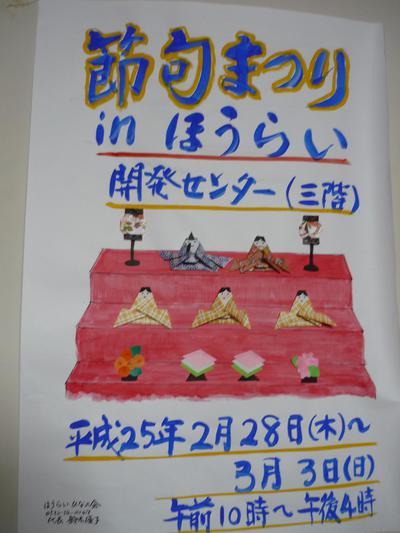 節句まつり
in ほうらい
開発センター(三階)
平成25年2月28日(木)〜
3月3日(日)
午前10時〜午後4時
ほうらいひなの会
代表 鈴木